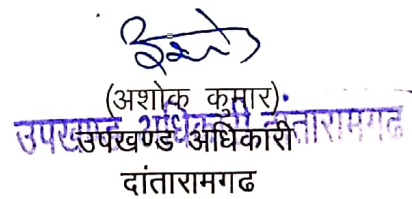 (अशोक कुमार)
उपखण्ड अधिकारी दांतारामगढ
उपखण्ड अधिकारी
दांतारामगढ